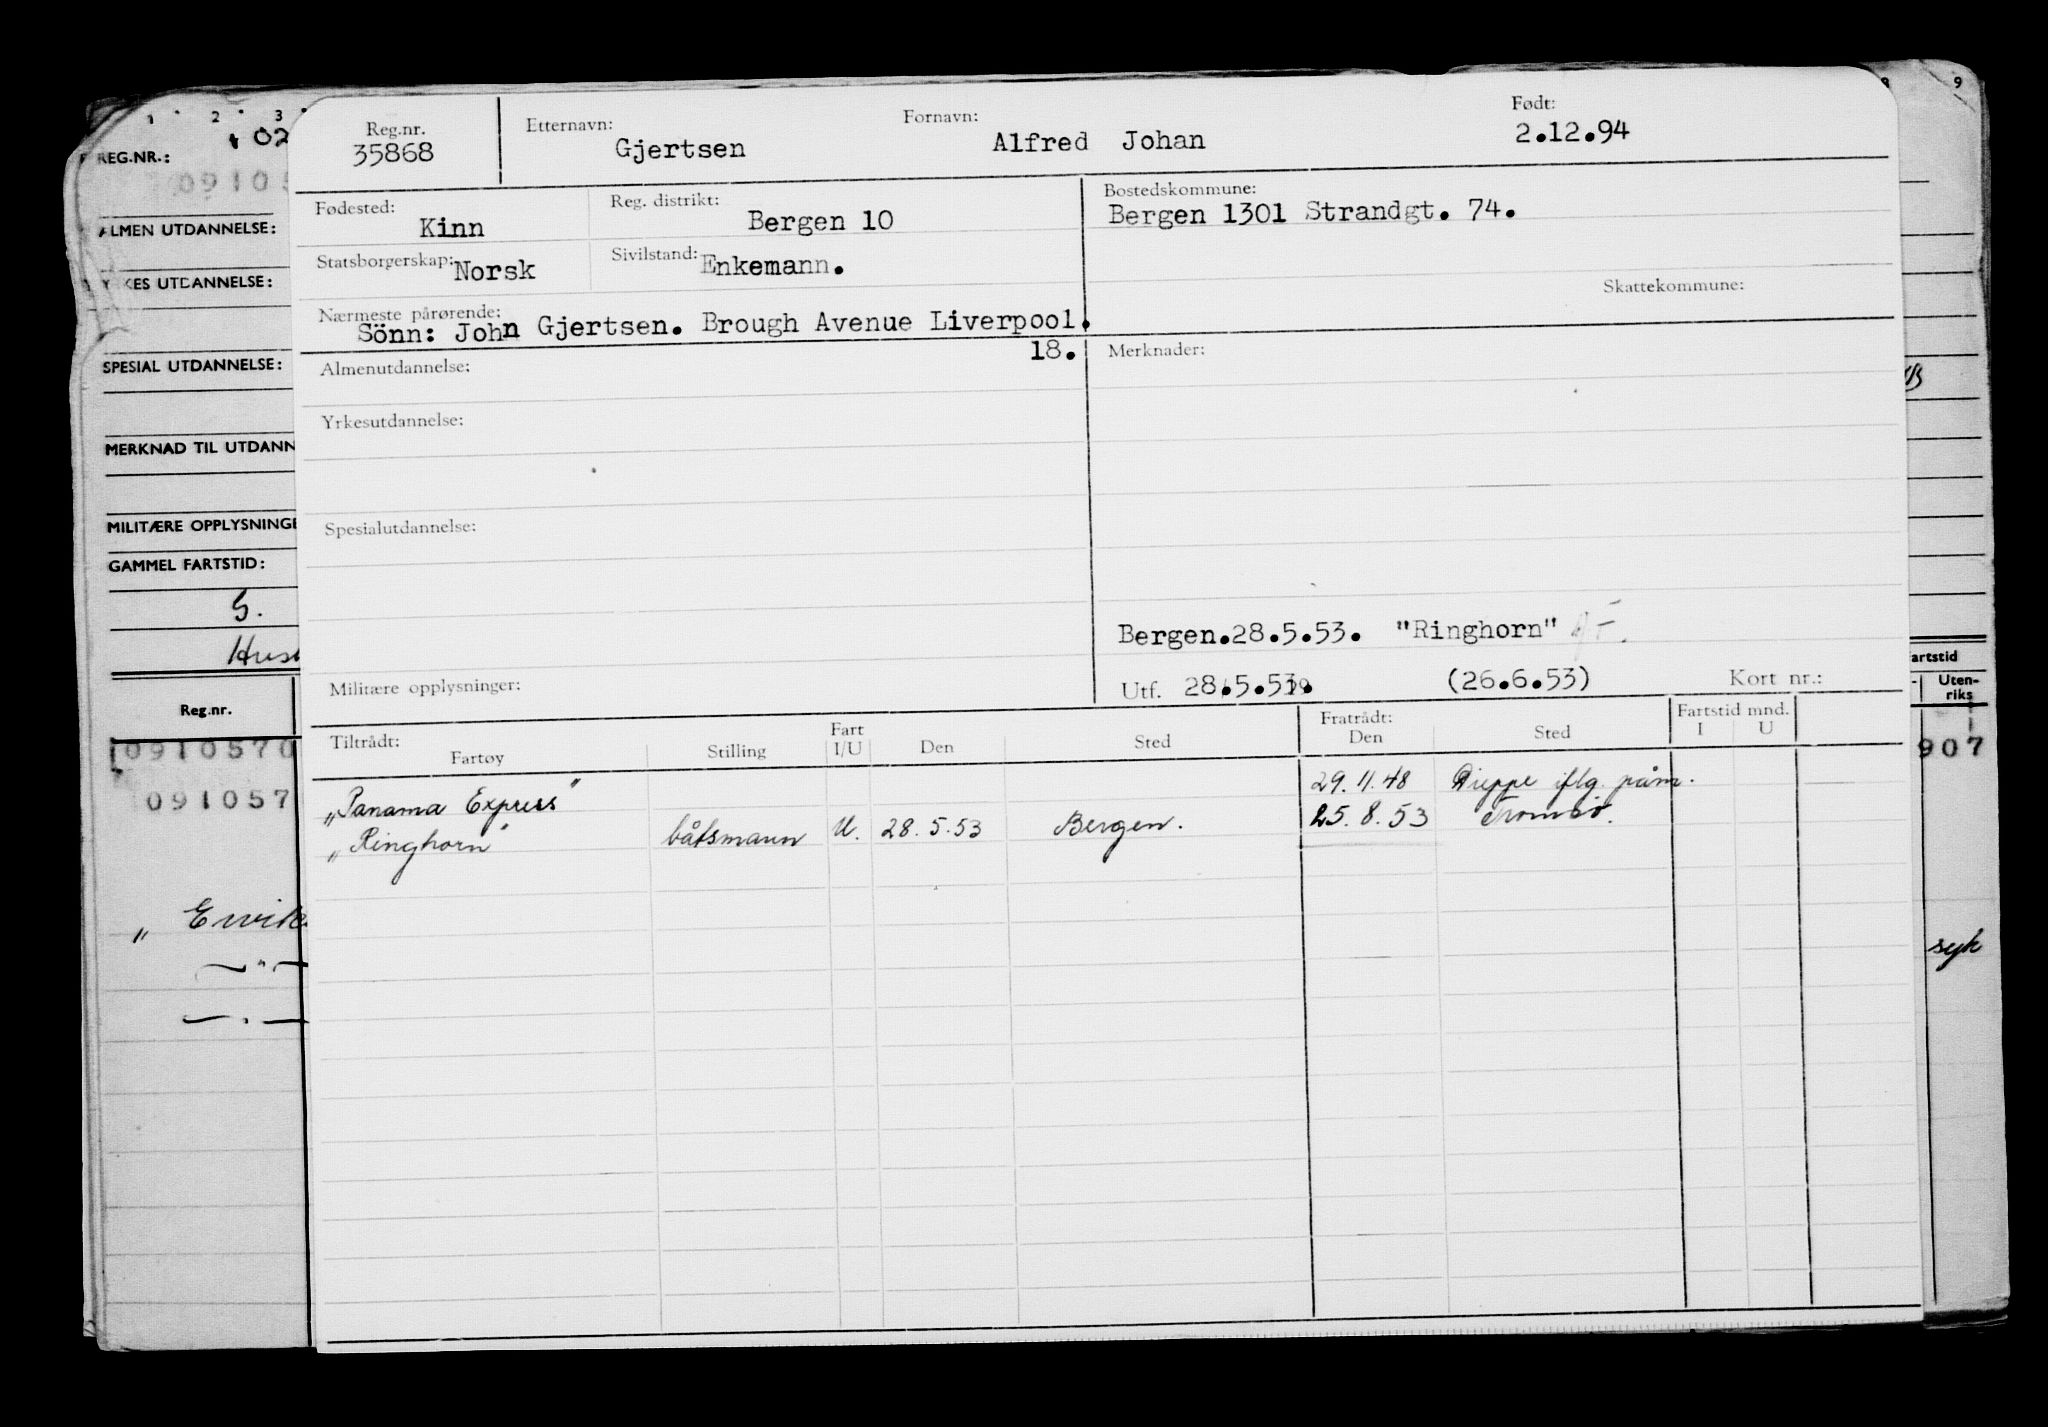 1 2 3 9
REG.NR.: 02
09105
ALMEN UTDANNELSE:
UTDANNELSE:
SPESIAL UTDANNELSE:
MERKNAD TIL UTDANN
MILITÆRE OPPLYSNINGE
GAMMEL FARTSTID:
S.
Reg.nr.
0910570
091057
artstid
Uten-
riks
907
syk
Reg.nr. Etternavn: Fornavn: Født:
35868 Gjertsen Alfred Johan 2.12.94
Fødested: Reg. distrikt: Bostedskommune:
Kinn Bergen 10 Bergen 1301 Strandgt. 74.
Statsborgerskap: Norsk Sivilstand: Enkemann.
Skattekommune:
Nærmeste pårørende:
Sönn: John Gjertsen. Brough Avenue Liverpool.
18.
Almenutdannelse: Merknader:
Yrkesutdannelse:
Spesialutdannelse:
Bergen.28.5.53. "Ringhorn"
Militære opplysninger: Utf. 28.5.53. (26.6.53) Kort nr.:
Tiltrådt: Fart Fratrådt: Fartstid mnd.
Fartøy Stilling I/U Den Sted Den Sted I U
„Panama Express" 29.11.48 Dieppe iflg. påm.
„Ringhorn" båtsmann U. 28.5.53 Bergen. 25.8.53 Tromsø.